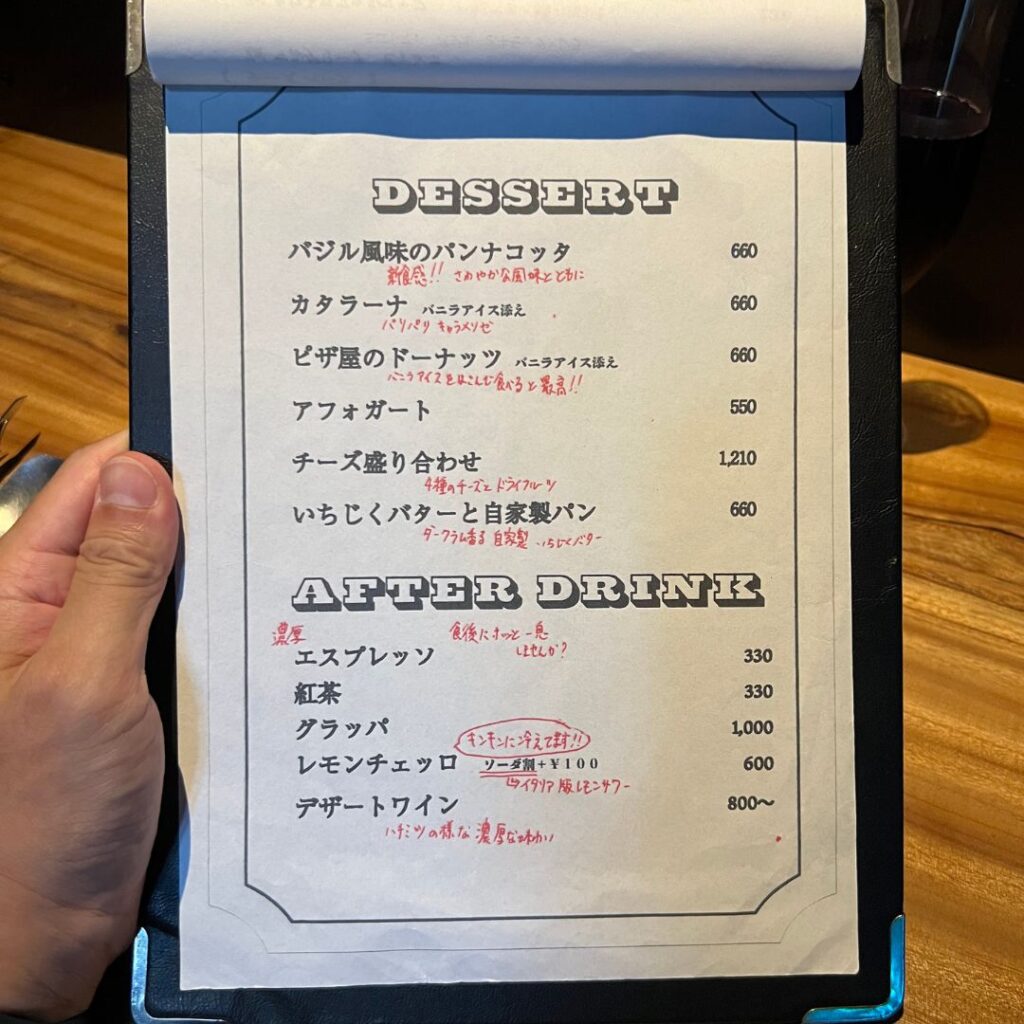 DESSERT
バジル風味のパンナコッタ 660
新食感!! さわやかな風味とともに
カタラーナ バニラアイス添え 660
パリパリ キャラメリゼ
ピザ屋のドーナッツ バニラアイス添え 660
バニラアイスをはさんで食べると最高!!
アフォガート 550
チーズ盛り合わせ 1,210
4種のチーズとドライフルーツ
いちじくバターと自家製パン 660
ダークラム香る 自家製 いちじくバター
AFTER DRINK
濃厚 食後にホッと一息
しませんか?
エスプレッソ 330
紅茶 330
グラッパ 1,000
キンキンに冷えてます!!
レモンチェッロ ソーダ割+¥100 600
↳イタリア版レモンサワー
デザートワイン 800〜
ハチミツの様な濃厚な味わい